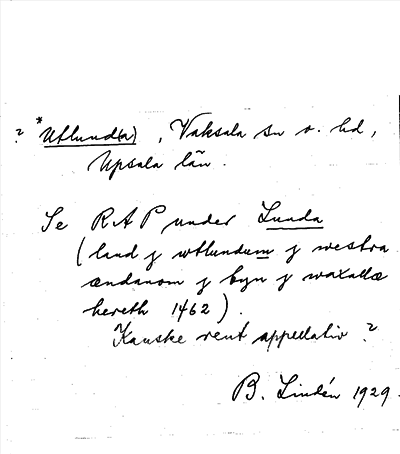 ? *Utlund(a), Vaksala sn o. hd,
Upsala län.
Se RAP under Lunda
(land j wtlundum j westra
ændanom j byn j waxallæ
hereth 1462).
Kanske rent appellativ?
B. Lindén 1929.